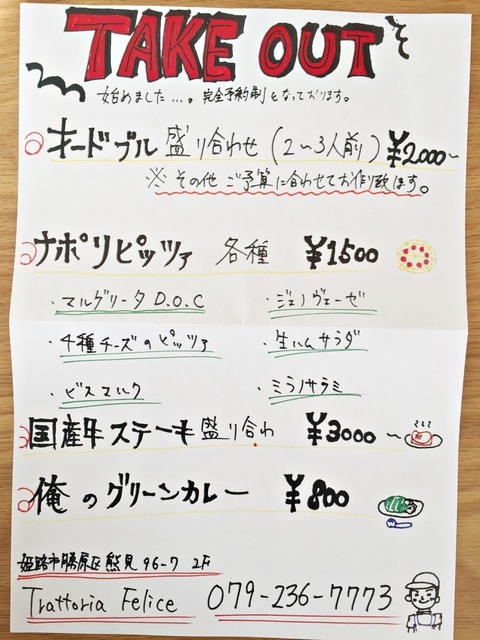 TAKE OUT
始めました...。完全予約制となっております。
オードブル 盛り合わせ (2〜3人前) ¥2000〜
※ その他 ご予算に合わせてお作り致します。
ナポリピッツァ 各種 ¥1500
・マルゲリータ D.O.C ・ジェノヴェーゼ
・4種チーズのピッツァ ・生ハムサラダ
・ビスマルク ・ミラノサラミ
国産牛ステーキ 盛り合わ ¥3000 〜
俺のグリーンカレー ¥800
姫路市勝原区熊見 96-7 2F
Trattoria Felice 079-236-7773